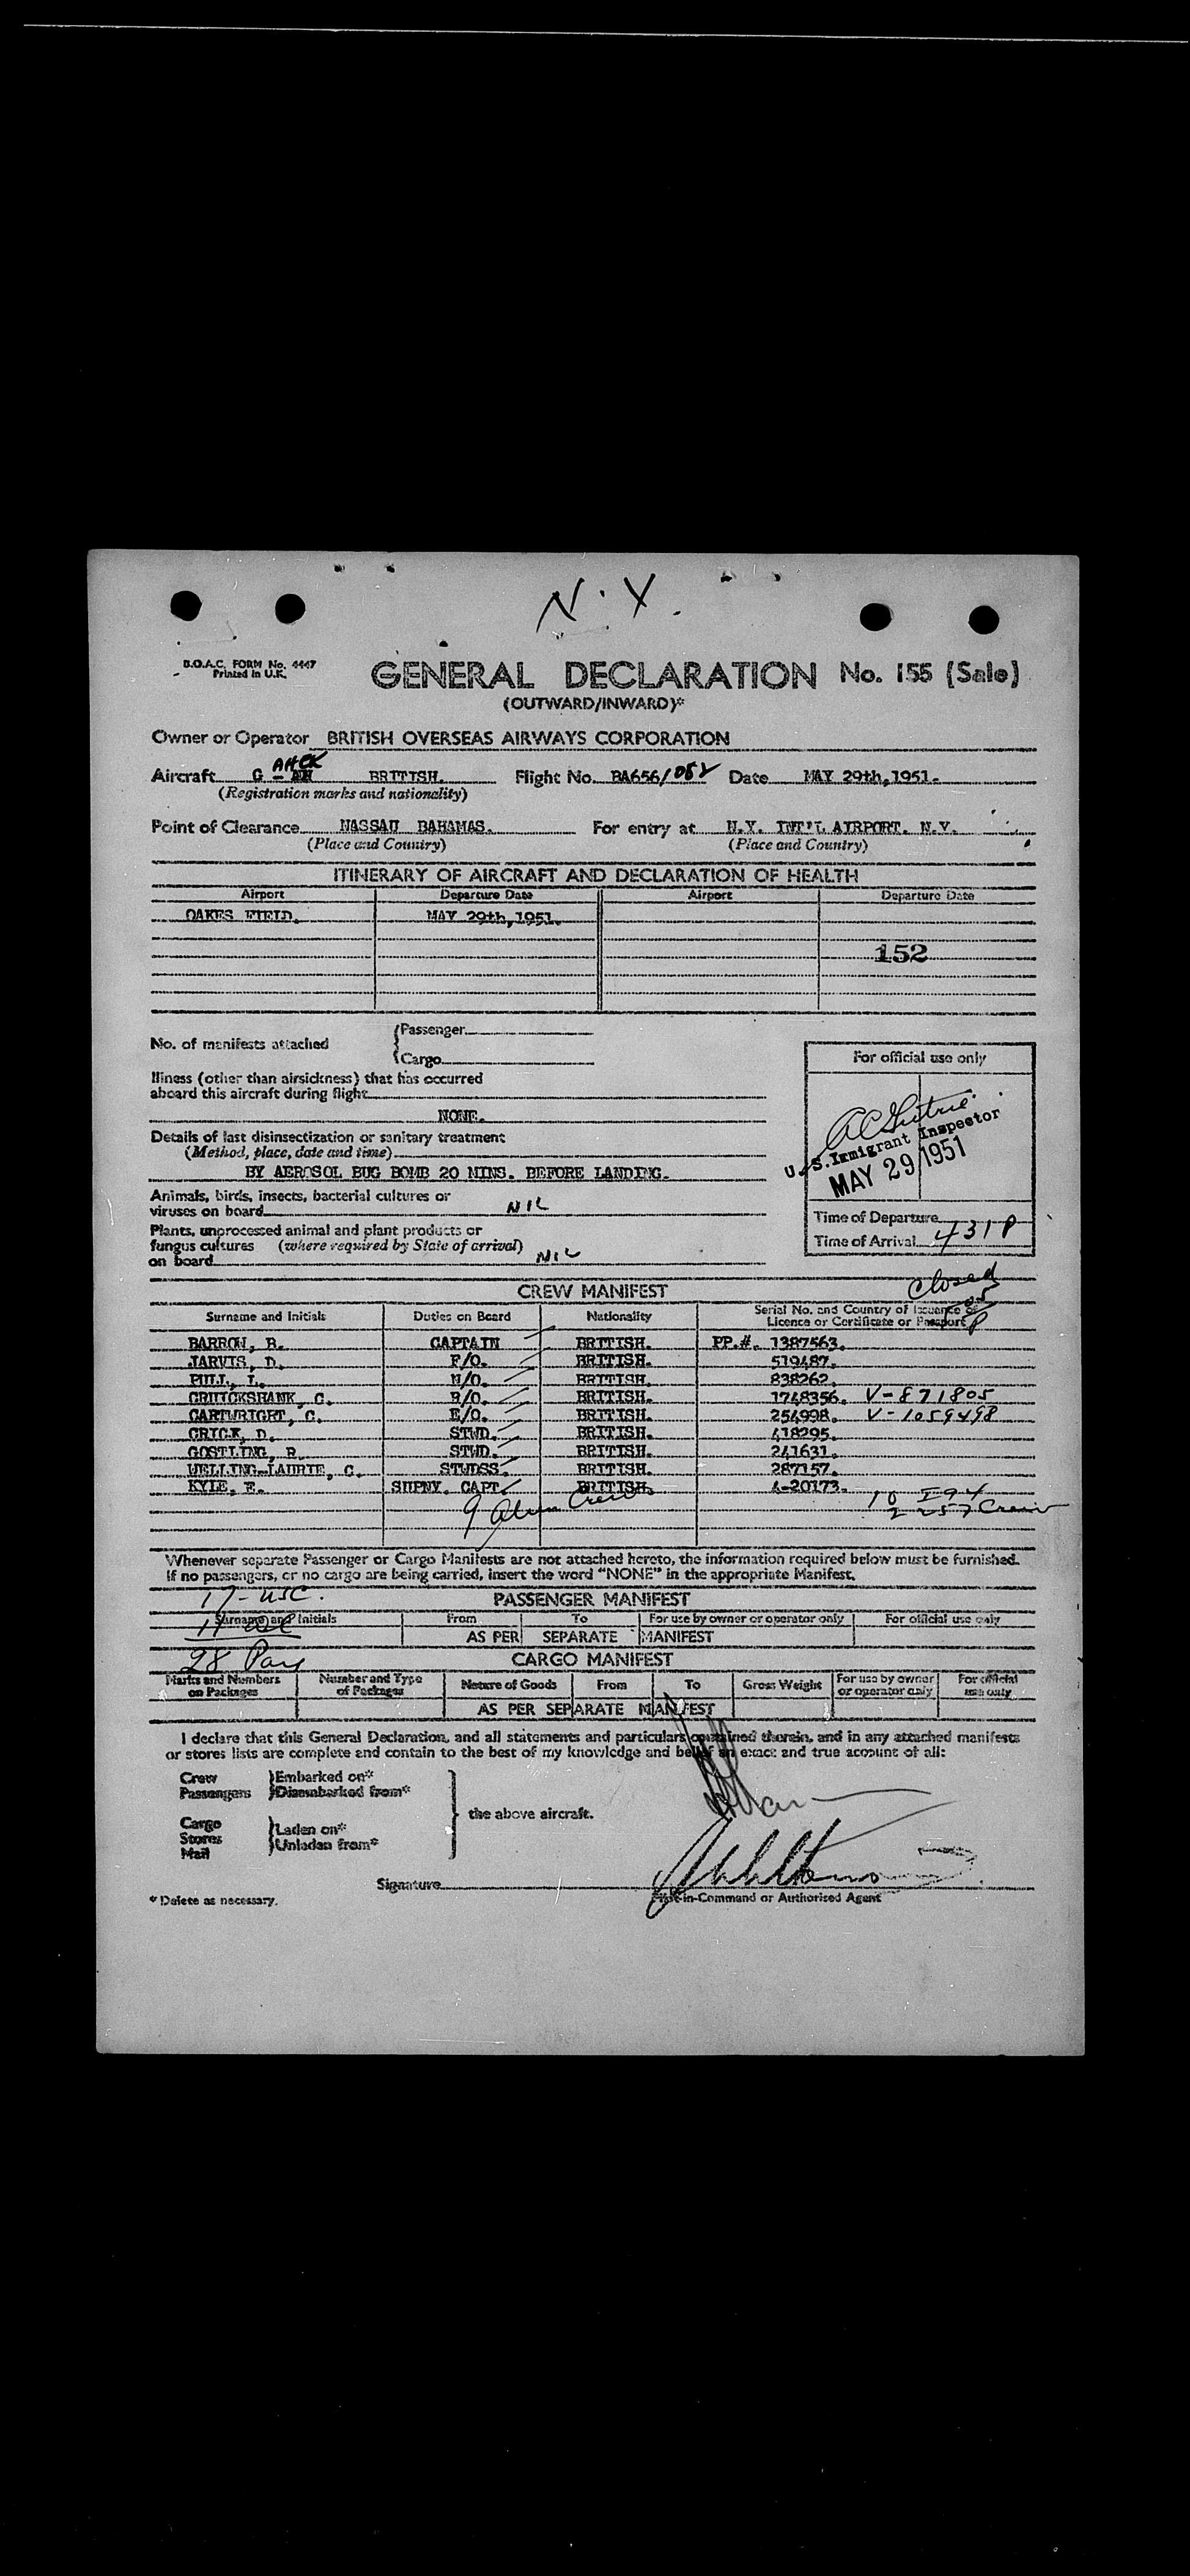 N.Y.
B.O.A.C. FORM No. 4447
Printed in U.K.
GENERAL DECLARATION No. 155 (Sale)
(OUTWARD/INWARD)*
Owner or Operator BRITISH OVERSEAS AIRWAYS CORPORATION
Aircraft G - AHCK BRITISH. Flight No. BA656/052 Date MAY 29th, 1951.
(Registration marks and nationality)
Point of Clearance NASSAU BAHAMAS. For entry at N.Y. INT'L AIRPORT. N.Y.
(Place and Country) (Place and Country)
ITINERARY OF AIRCRAFT AND DECLARATION OF HEALTH
Airport Departure Date Airport Departure Date
OAKES FIELD. MAY 29th, 1951.
152
No. of manifests attached
Passenger
Cargo
For official use only
Illness (other than airsickness) that has occurred
aboard this aircraft during flight
NONE.
Details of last disinsectization or sanitary treatment
(Method, place, date and time)
BY AEROSOL BUG BOMB 20 MINS. BEFORE LANDING.
U.S. Immigrant Inspector
MAY 29 1951
Animals, birds, insects, bacterial cultures or
viruses on board NIL
Plants, unprocessed animal and plant products or
fungus cultures (where required by State of arrival)
on board NIL
Time of Departure
Time of Arrival 431P
Closed
CREW MANIFEST
Surname and Initials Duties on Board Nationality Serial No. and Country of Issuance of
Licence or Certificate or Passport
BARROW, B. CAPTAIN BRITISH. PP.#. 1387563.
JARVIS, D. F/O. BRITISH. 519487.
PULL, L. N/O. BRITISH. 838262.
CRUICKSHANK, C. R/O. BRITISH. 1748356. V-871805
CARTWRIGHT, C. E/O. BRITISH. 254998. V-1059498
CRICK, D. STWD. BRITISH. 418295.
GOSTLING, R. STWD. BRITISH. 241631.
WELLING-LAURIE, C. STWDSS. BRITISH. 287157.
KYLE, E. SUPNY. CAPT. BRITISH. A-20173.
9 Alien Crew
10 I94
2 257 Crew
Whenever separate Passenger or Cargo Manifests are not attached hereto, the information required below must be furnished.
If no passengers, or no cargo are being carried, insert the word "NONE" in the appropriate Manifest.
17 - USC.
PASSENGER MANIFEST
Surname and Initials From To For use by owner or operator only For official use only
11
AS PER SEPARATE MANIFEST
28 Pax
CARGO MANIFEST
Marks and Numbers on Packages Number and Type of Packages Nature of Goods From To Gross Weight For use by owner or operator only For official use only
AS PER SEPARATE MANIFEST
I declare that this General Declaration, and all statements and particulars contained therein, and in any attached manifests
or stores lists are complete and contain to the best of my knowledge and belief an exact and true account of all:
Crew Embarked on*
Passengers Disembarked from*
the above aircraft.
Cargo
Stores Laden on*
Mail Unladen from*
Signature
Pilot-in-Command or Authorised Agent
* Delete as necessary.